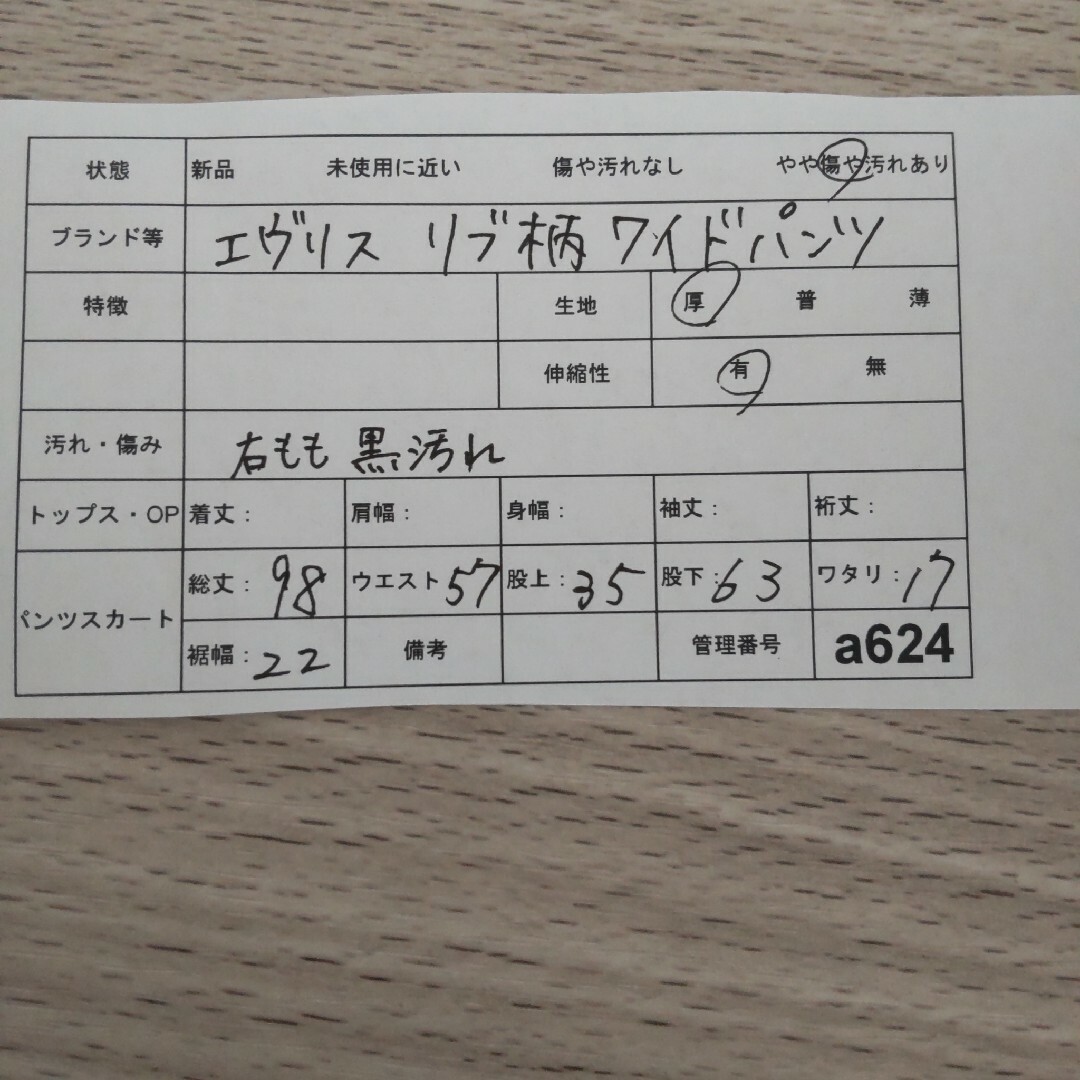 状態 新品 未使用に近い 傷や汚れなし やや傷や汚れあり
ブランド等 エヴリス リブ柄 ワイドパンツ
特徴 生地 厚 普 薄
伸縮性 有 無
汚れ・傷み 右もも 黒汚れ
トップス・OP 着丈: 肩幅: 身幅: 袖丈: 裄丈:
パンツスカート 総丈: 98 ウエスト 57 股上: 35 股下: 63 ワタリ: 17
裾幅: 22 備考 管理番号 a624